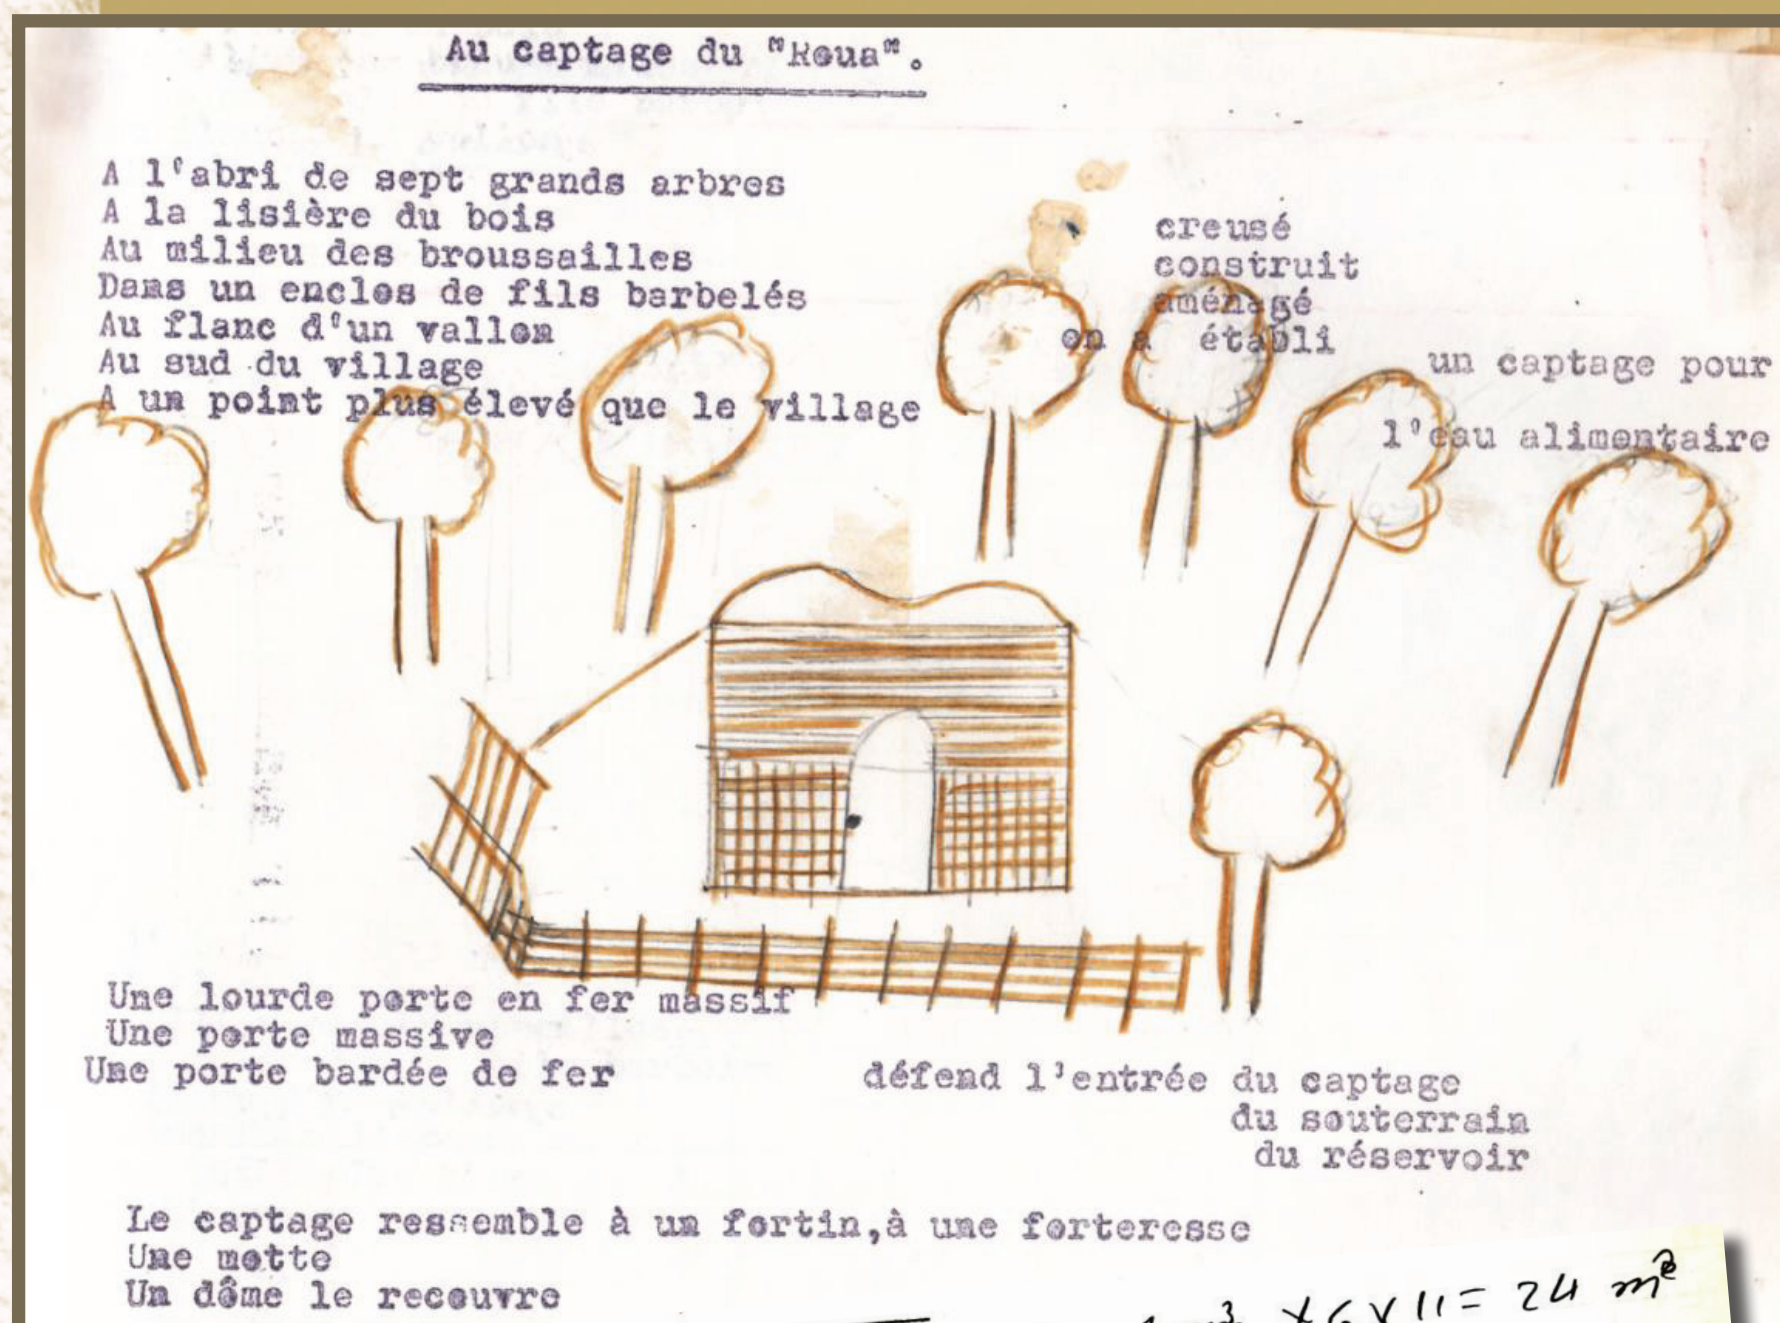 Au captage du "Roua".
A l'abri de sept grands arbres
A la lisière du bois
Au milieu des broussailles
Dans un enclos de fils barbelés
Au flanc d'un vallon
Au sud du village
A un point plus élevé que le village
creusé
construit
aménagé
on a établi
un captage pour
l'eau alimentaire
Une lourde porte en fer massif
Une porte massive
Une porte bardée de fer
défend l'entrée du captage
du souterrain
du réservoir
Le captage ressemble à un fortin,à une forteresse
Une motte
Un dôme le recouvre
x 6 x 11 = 24 m²